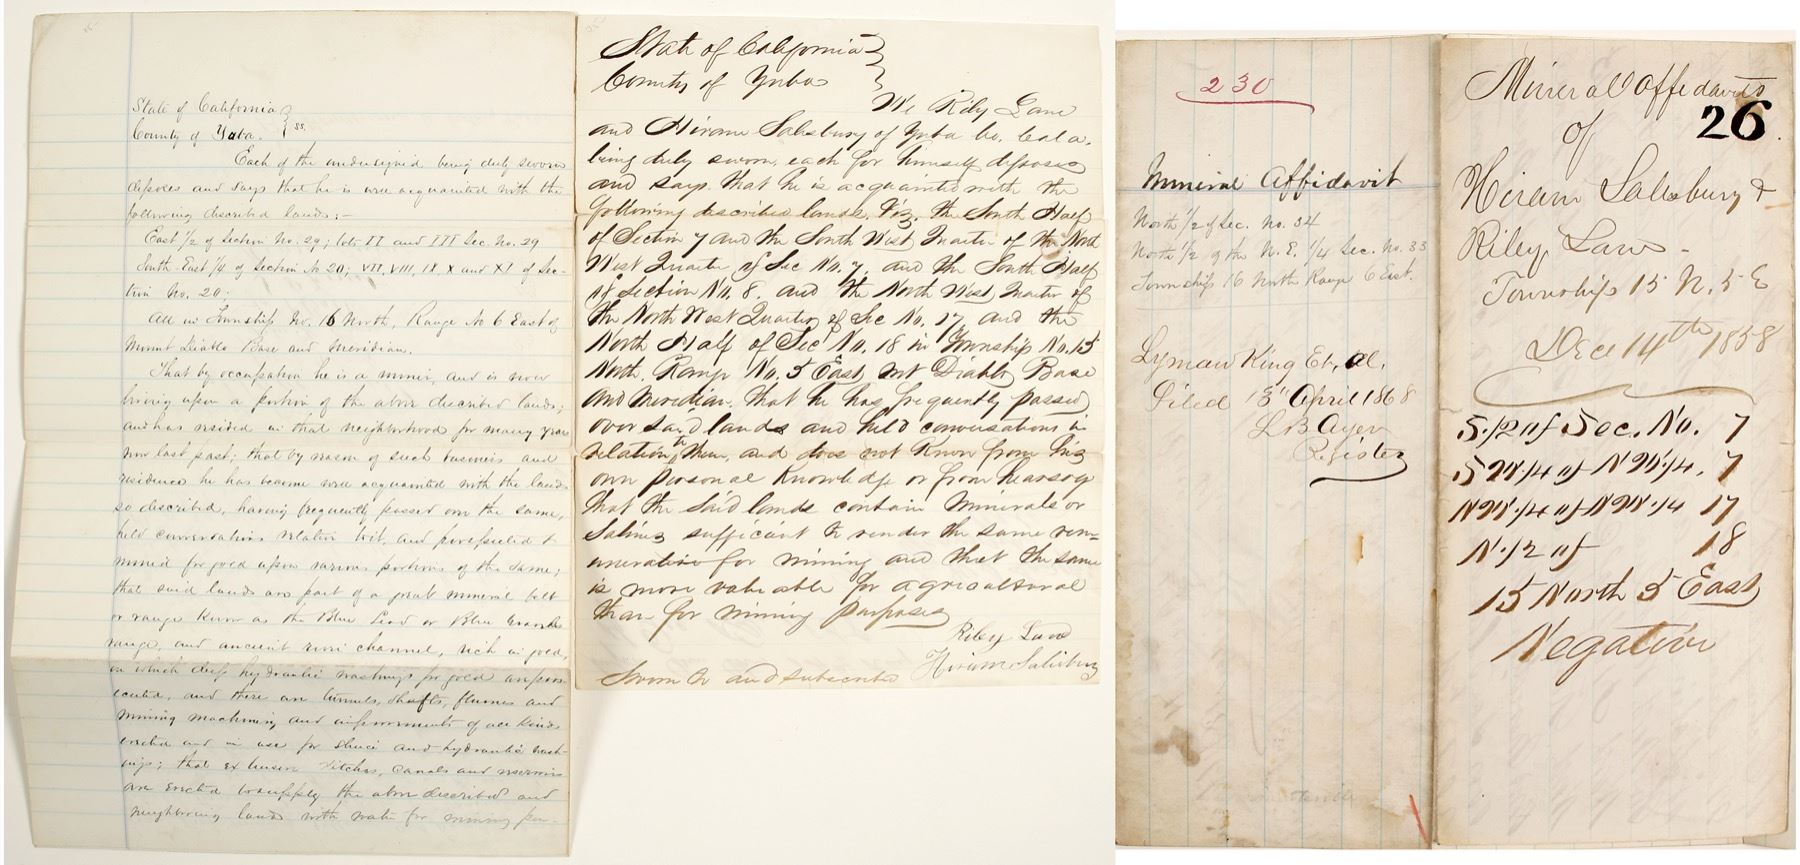 State of California
County of Yuba. } ss.
Each of the undersigned being duly sworn
deposes and says that he is well acquainted with the
following described lands; –
East 1/2 of Section No. 29; lots II and III Sec. No. 29
South-East 1/4 of Section No 20; VII, VIII, IX X and XI of Sec-
tion No. 20;
All in Township No. 16 North, Range No 6 East of
Mount Diablo Base and Meridian.
That by occupation he is a miner, and is now
living upon a portion of the above described lands;
and has resided in that neighborhood for many years
now last past; that by reason of such business and
residence he has become well acquainted with the lands
so described, having frequently passed over the same,
held conversations relative to it, and prospected &
mined for gold upon various portions of the same;
that said lands are part of a great mineral belt
or range known as the Blue Lead or Blue
range, and ancient river channel, rich in gold,
in which deep hydraulic washings for gold are pros-
ecuted, and there are tunnels, shafts, flumes and
mining machinery and improvements of all kinds
erected and in use for sluice and hydraulic wash-
ings; that extensive ditches, canals and reservoirs
are erected to supply the above described and
neighboring lands with water for mining pur-
State of California }
County of Yuba }
We Riley Lane
and Hiram Salisbury of Yuba Co. Cala.
being duly sworn, each for himself deposes
and says. That he is acquainted with the
following described lands, Viz. the South Half
of Section 7 and the South West Quarter of the North
West Quarter of Sec No. 7. and the South Half
of Section No. 8. and the North West Quarter of
the North West Quarter of Sec No. 17 and the
North Half of Sec No. 18 in Township No. 15
North, Range No. 5 East, Mt Diablo Base
and Meridian. That he has frequently passed
over said lands and held conversations in
relation to them, and does not Know from his
own personal Knowledge or from hearsay
that the said lands contain minerals or
Salines sufficiant to render the same rem-
unerative for mining and that the same
is more valuable for agricultural
than for mining purposes
Riley Lane
Hiram Salisbury
Sworn to and subscribed
230
Mineral Affidavit
North 1/2 of Sec. No. 34
North 1/2 of the N. E. 1/4 Sec. No. 33
Township 16 North Range 6 East.
Lyman King Et. al.
Filed 13" April 1868
L B Ayer
Register
Mineral Affidavits
26
of
Hiram Salisbury &
Riley Lane -
Township 15 N. 5 E
Dec 14th 1858
S. 1/2 of Sec. No. 7
S W. 1/4 of N W. 1/4. 7
N W. 1/4 of N W. 1/4 17
N. 1/2 of 18
15 North 5 East
Negative